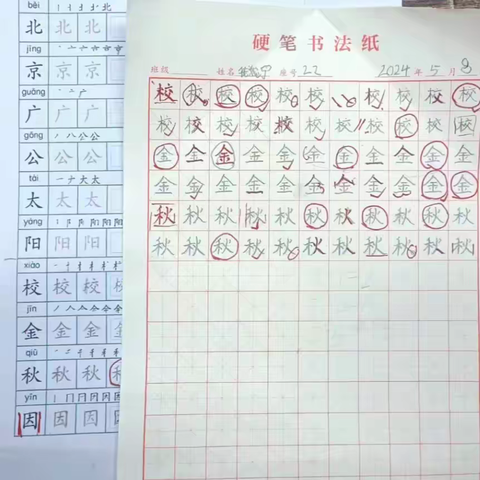 běi
北 北 北
jīng
京 京 京
guǎng
广 广 广
gōng
公 公 公
tài
太 太 太
yáng
阳 阳 阳
xiào
校 校 校
jīn
金 金 金
qiū
秋 秋 秋
yīn
因 因 因
硬笔书法纸
班级 姓名 座号 22 2024 年 5 月 8
校 校 校 校 校 校 校 校 校 校
校 校 校 校 校 校 校 校 校 校 校
金 金 金 金 金 金 金 金 金 金 金
金 金 金 金 金 金 金 金 金 金 金
秋 秋 秋 秋 秋 秋 秋 秋 秋 秋 秋
秋 秋 秋 秋 秋 秋 秋 秋 秋 秋 秋